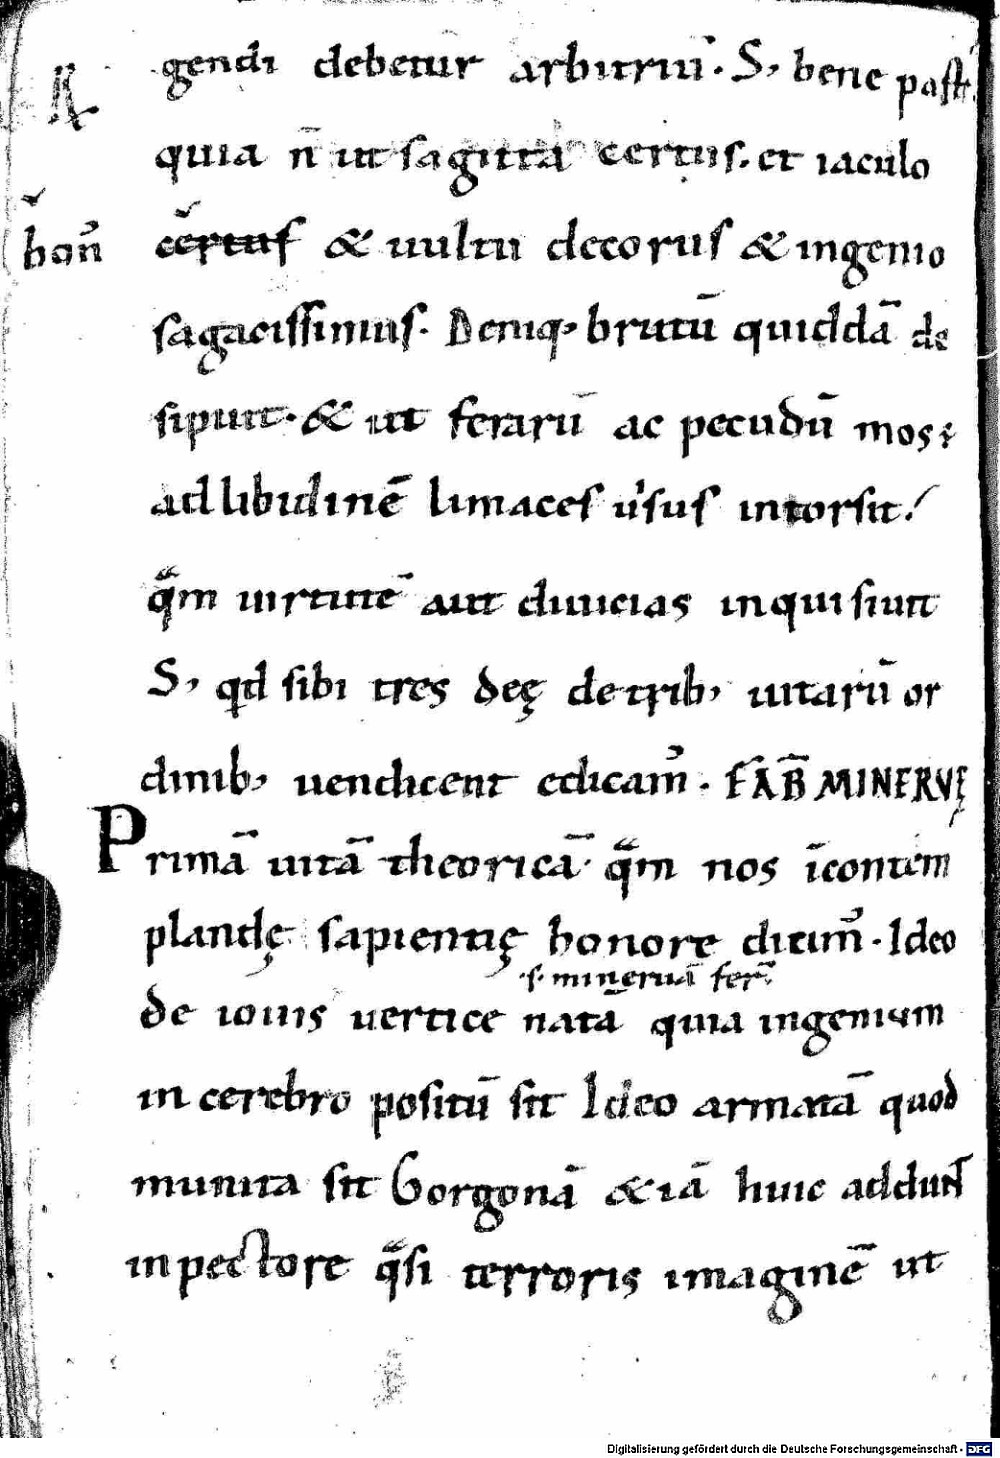 gendi debetur arbitriū. S; bene past
quia n̄ ut sagitta certus. et iaculo
bon̄ certus & uultu decorus & ingenio
sagacissimus. Deniq; brutū quiddā de
sipuit. & ut ferarū ac pecudū mos ÷
ad libidinē limaces uisus intorsit.
quā uirtutē aut diuicias inquisiuit
S; qd sibi tres deę de trib; uitarū or
dinib; uendicent edicam̄. FAB̄ MINERVĘ
Primā uitā theoricā. qm nos īcontem
plandę sapientię honore dicim̄. Ideo
.s. mineruā fer̄
de iouis uertice natā quia ingenium
in cerebro positū sit Ideo armatā quod
munita sit Gorgonā & iā huic addunt
in pectore qsi terroris imaginē ut
Digitalisierung gefördert durch die Deutsche Forschungsgemeinschaft - DFG